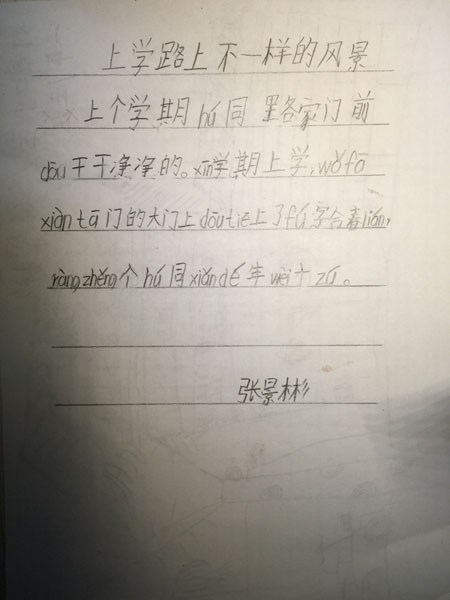 上学路上不一样的风景
上个学期hú同里各家门前
dōu干干净净的。xīn学期上学,wǒfā
xiàntā门的大门上dōutiē上了fú字合春lián,
ràngzhěng个hú同xiǎndé年wèi十zú。
张景彬